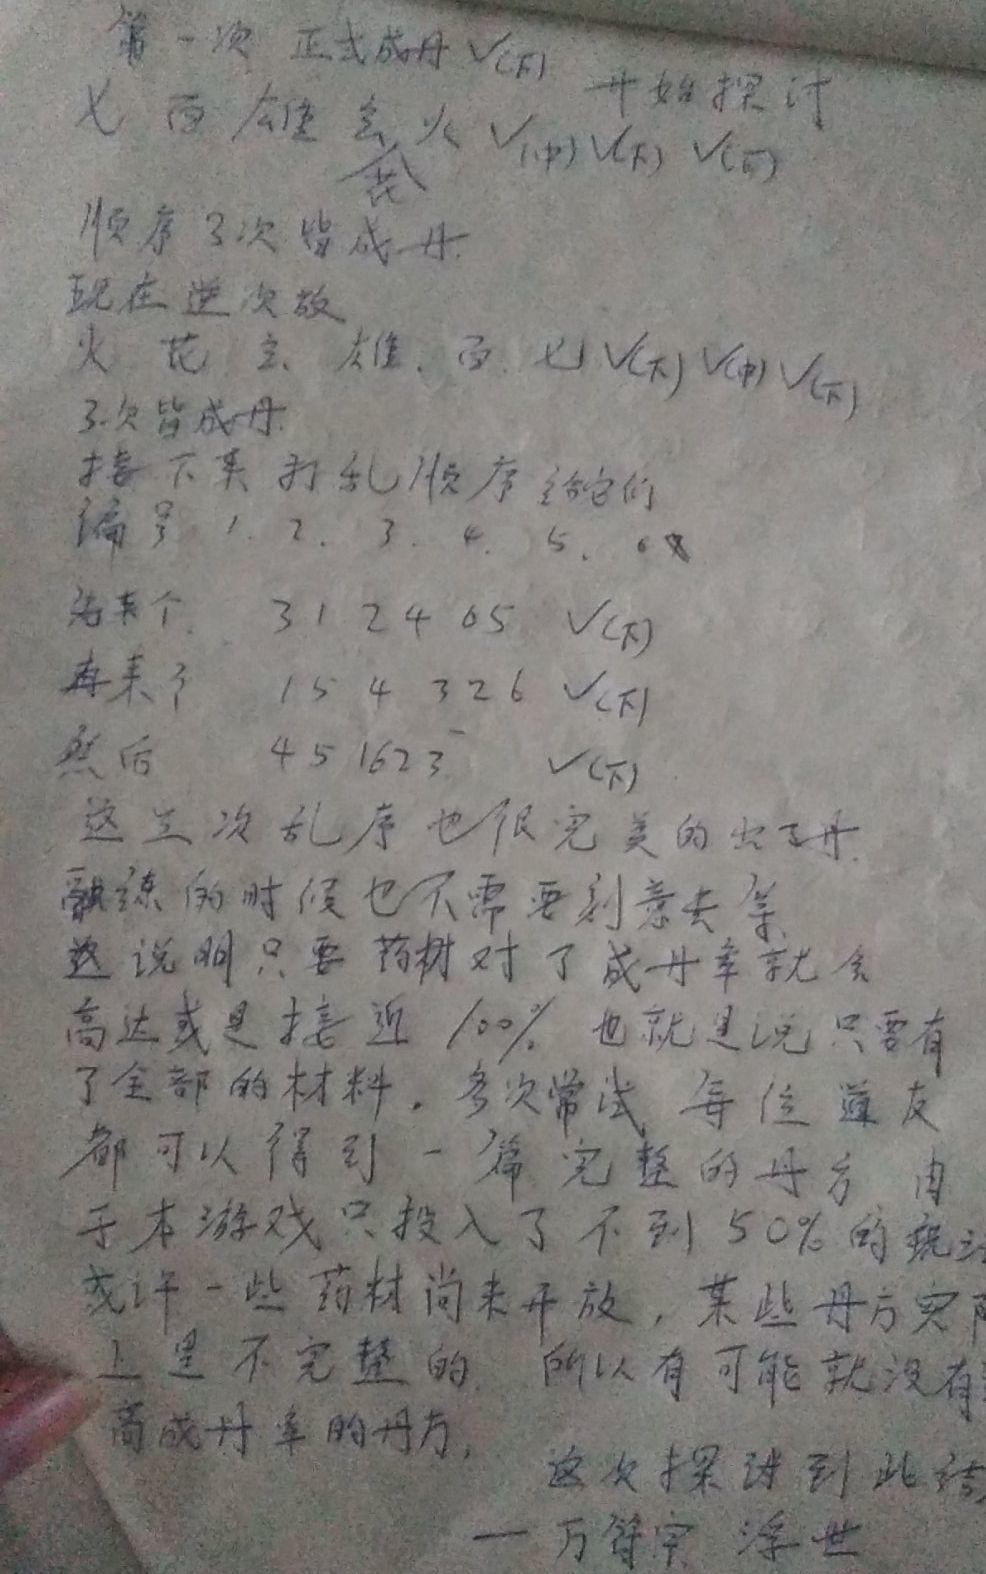 第一次 正式成丹 √(下)
开始探讨
七 百 雄 玄 火 √(中) √(下) √(下)
花
顺序3次皆成丹.
现在逆次放
火 花 玄 雄. 百. 七 √(下) √(中) √(下)
3次皆成丹.
接下来打乱顺序给它们
编号 1. 2. 3. 4. 5. 6
先来个 312465 √(下)
再来个 154326 √(下)
然后 451623 √(下)
这三次乱序也很完美的出了丹.
融练的时候也不需要刻意去等
这说明只要药材对了成丹率就会
高达或是接近100% 也就是说只要有
了全部的材料, 多次常试 每位道友
都可以得到一篇完整的丹方 由
于本游戏只投入了不到50%的
或许一些药材尚未开放, 某些丹方实际
上是不完整的. 所以有可能就没有
高成丹率的丹方.
这次探讨到此结
—万符宗 浮世